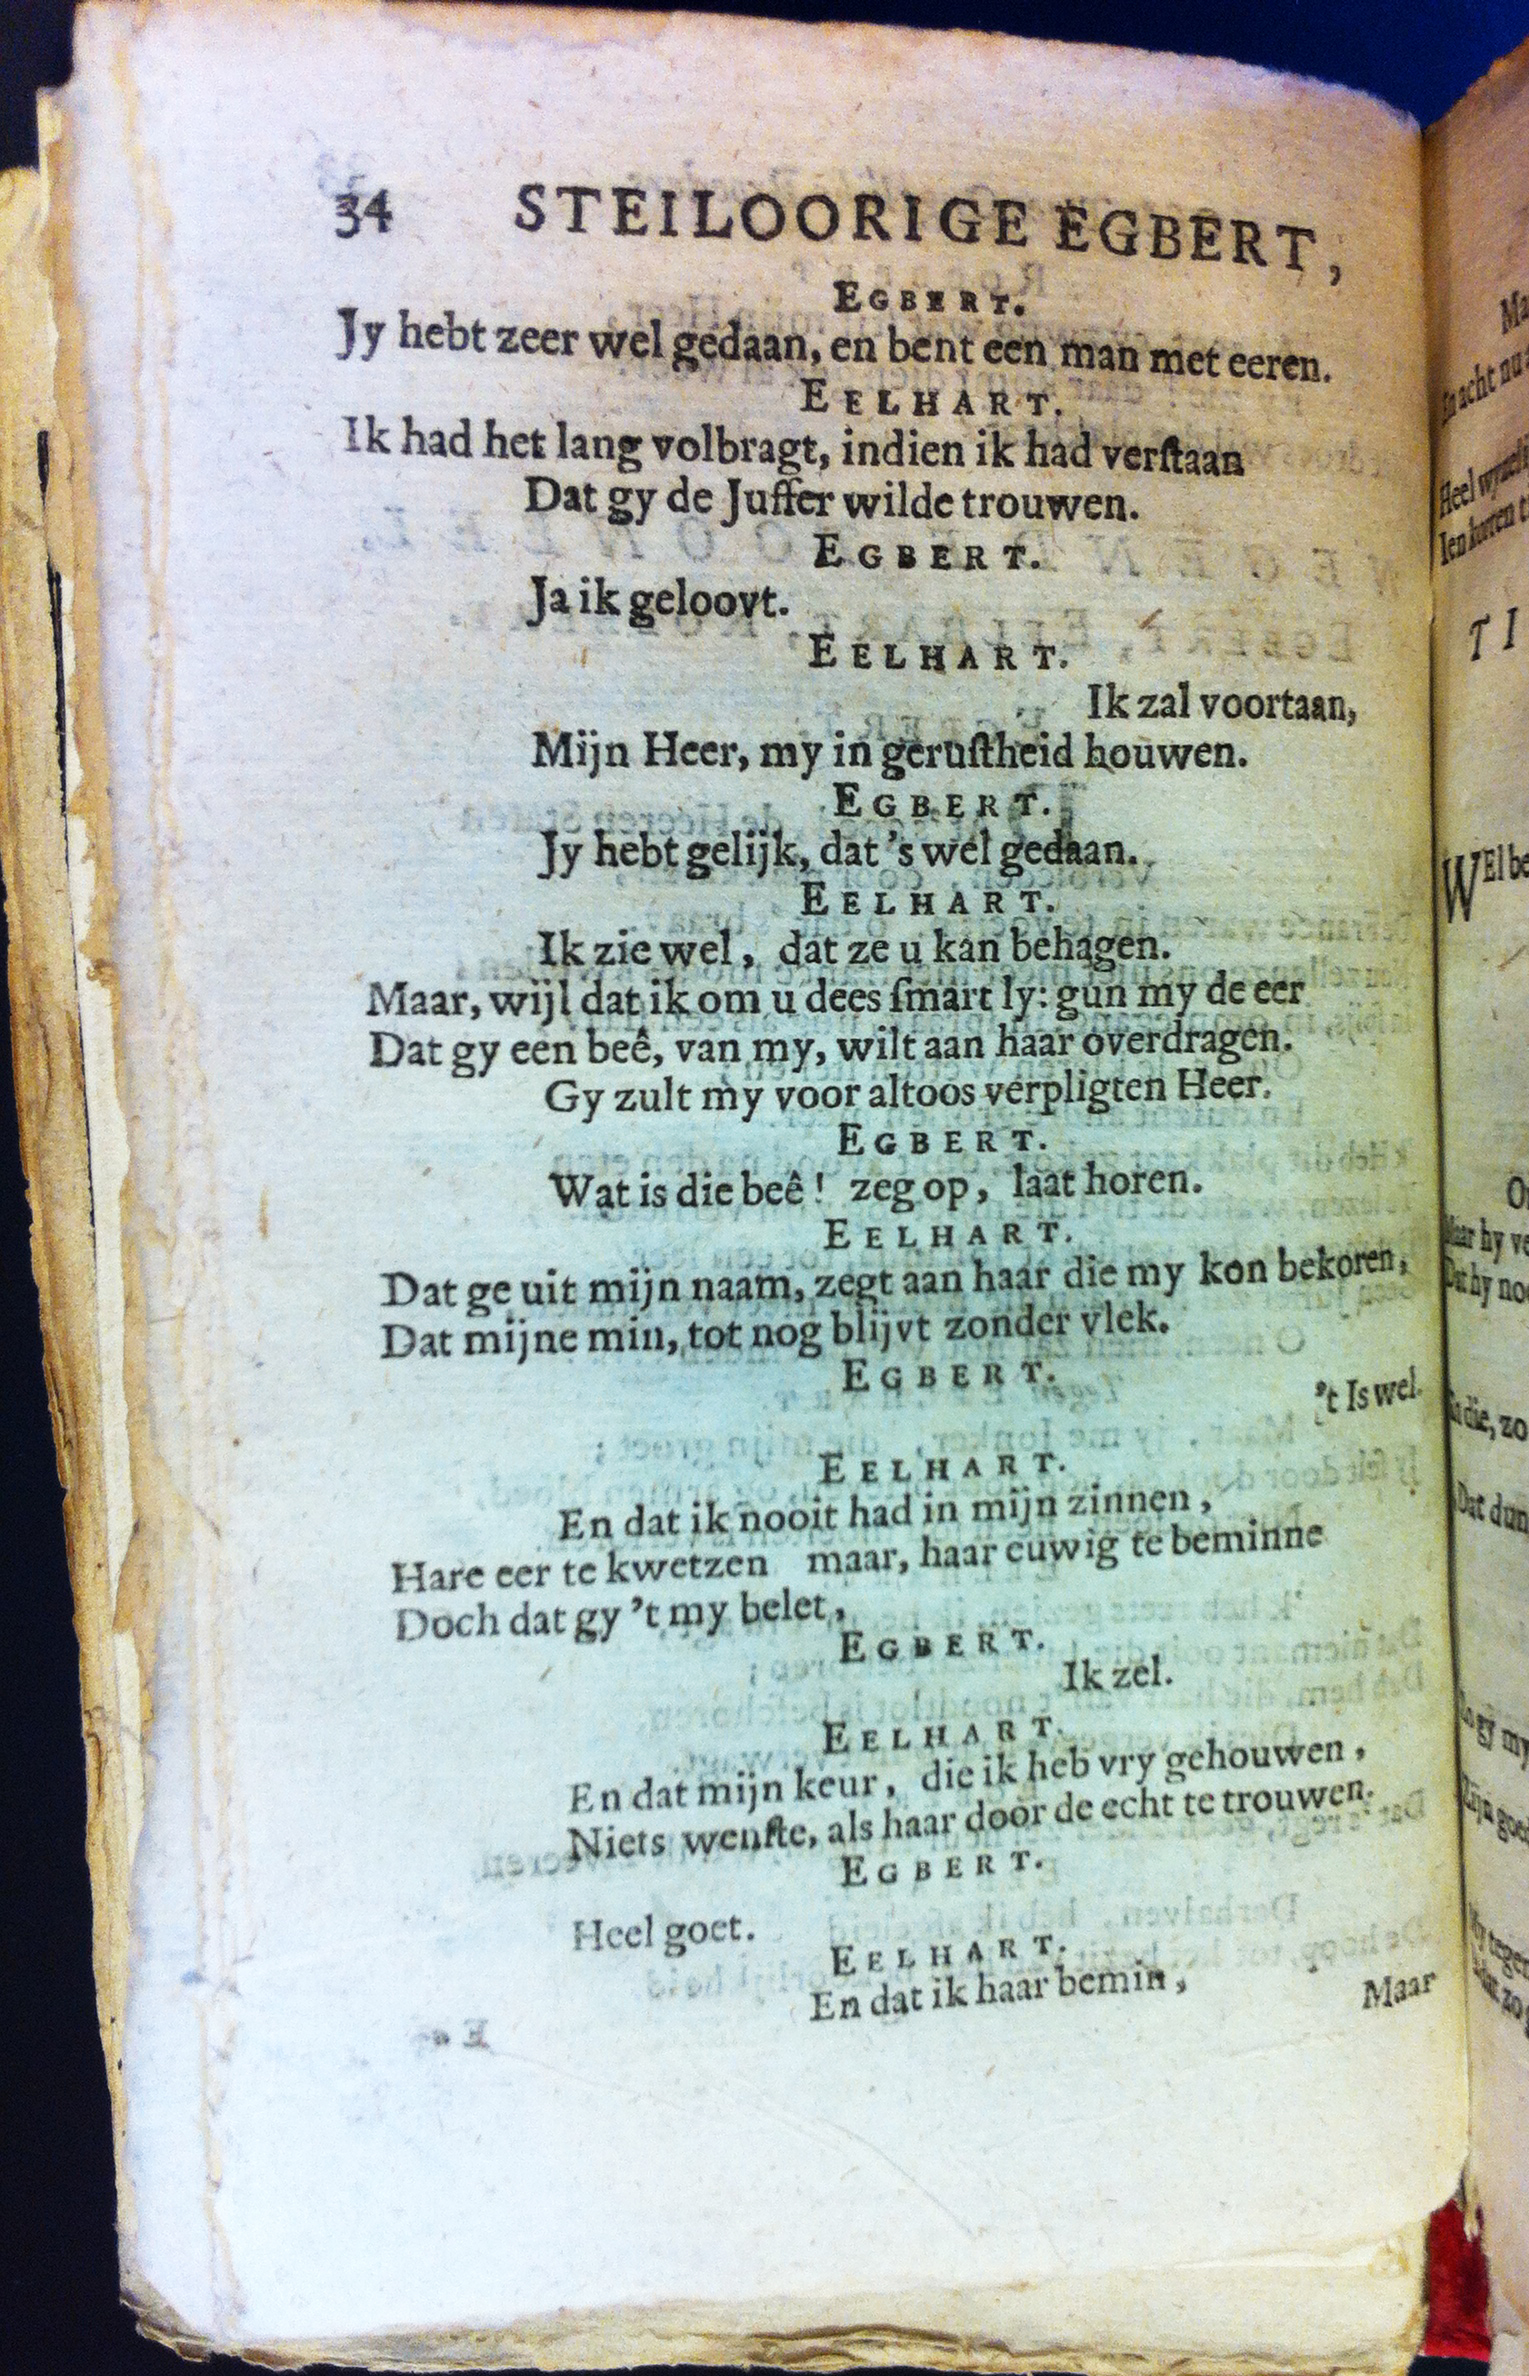 34 STEILOORIGE EGBERT,
EGBERT.
Jy hebt zeer wel gedaan, en bent een man met eeren.
EELHART.
Ik had het lang volbragt, indien ik had verſtaan
Dat gy de Juffer wilde trouwen.
EGBERT.
Ja ik geloovt.
EELHART.
Ik zal voortaan,
Mijn Heer, my in geruſtheid houwen.
EGBERT.
Jy hebt gelijk, dat 's wel gedaan.
EELHART.
Ik zie wel, dat ze u kan behagen.
Maar, wijl dat ik om u dees ſmart ly: gun my de eer
Dat gy een beê, van my, wilt aan haar overdragen.
Gy zult my voor altoos verpligten Heer.
EGBERT.
Wat is die beê! zeg op, laat horen.
EELHART.
Dat ge uit mijn naam, zegt aan haar die my kon bekoren,
Dat mijne min, tot nog blijvt zonder vlek.
EGBERT.
't Is wel.
EELHART.
En dat ik nooit had in mijn zinnen,
Hare eer te kwetzen maar, haar euwig te beminne
Doch dat gy 't my belet,
EGBERT.
Ik zel.
EELHART.
En dat mijn keur, die ik heb vry gehouwen,
Niets wenſte, als haar door de echt te trouwen.
EGBERT.
Heel goet.
EELHART.
En dat ik haar bemin,
Maar